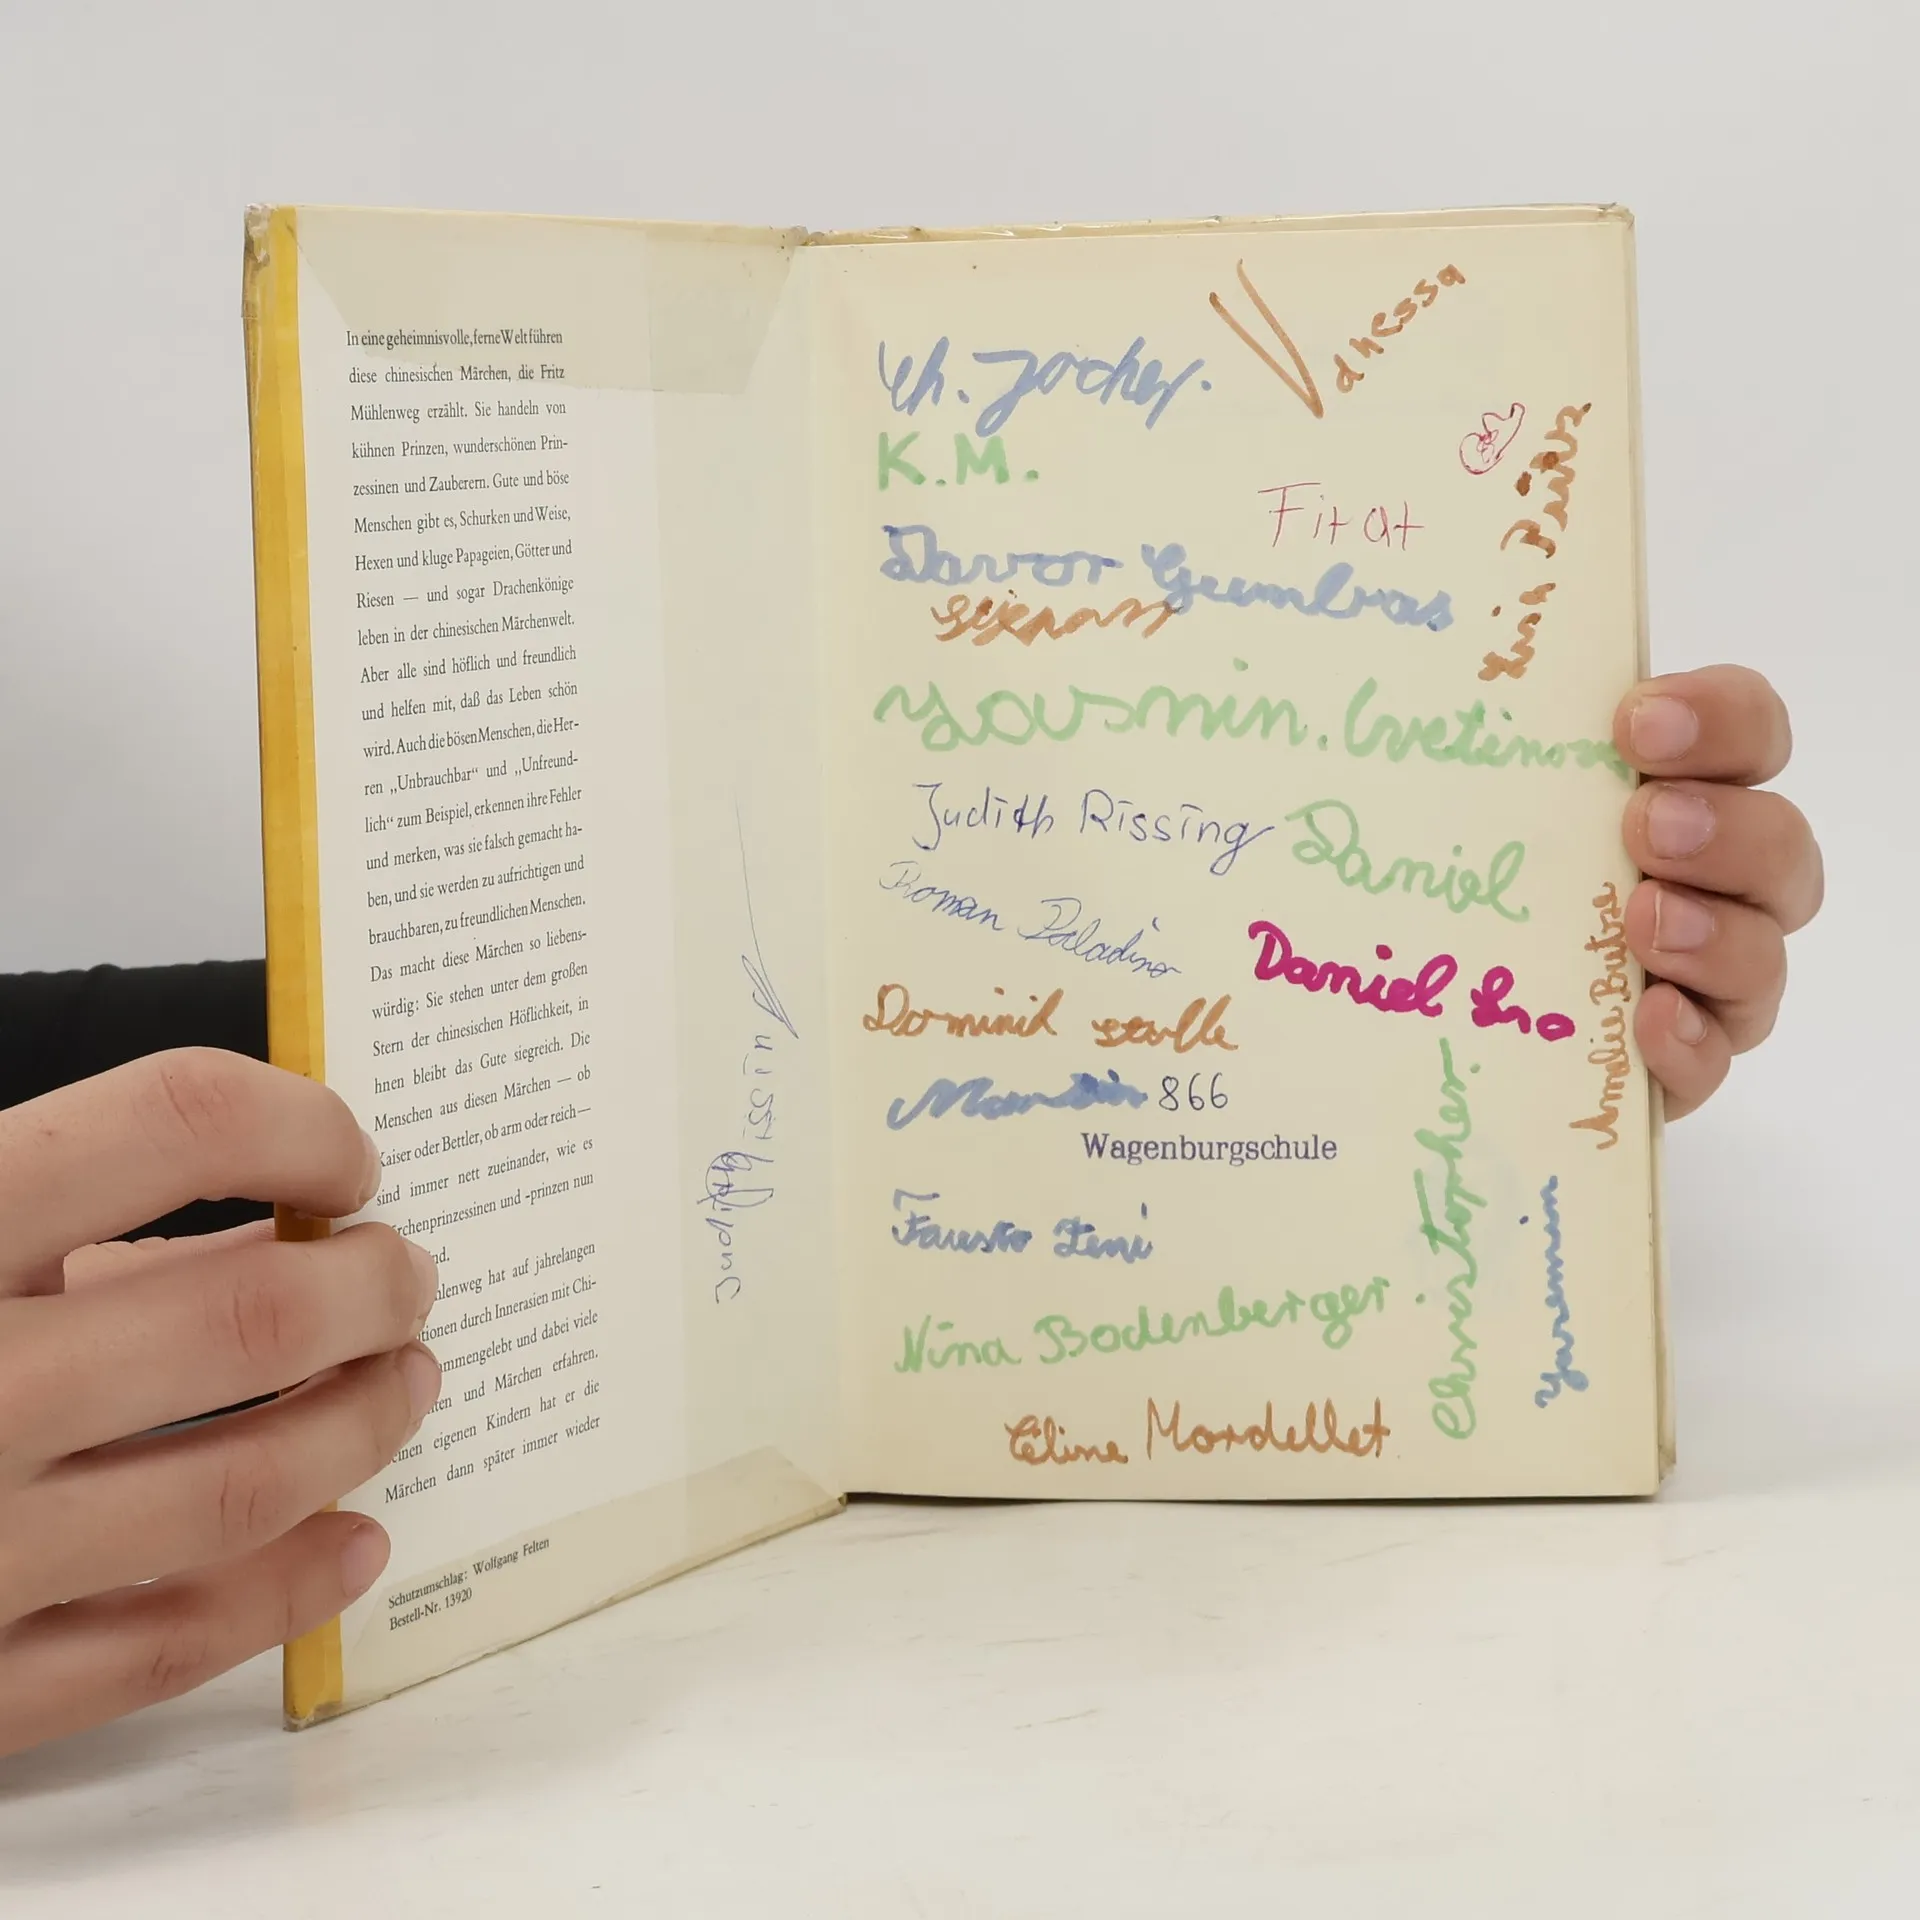 In eine geheimnisvolle, ferne Welt führen
diese chinesischen Märchen, die Fritz
Mühlenweg erzählt. Sie handeln von
kühnen Prinzen, wunderschönen Prin-
zessinen und Zauberern. Gute und böse
Menschen gibt es, Schurken und Weise,
Hexen und kluge Papageien, Götter und
Riesen — und sogar Drachenkönige
leben in der chinesischen Märchenwelt.
Aber alle sind höflich und freundlich
und helfen mit, daß das Leben schön
wird. Auch die bösen Menschen, die Her-
ren „Unbrauchbar“ und „Unfreund-
lich“ zum Beispiel, erkennen ihre Fehler
und merken, was sie falsch gemacht ha-
ben, und sie werden zu aufrichtigen und
brauchbaren, zu freundlichen Menschen.
Das macht diese Märchen so liebens-
würdig: Sie stehen unter dem großen
Stern der chinesischen Höflichkeit, in
hnen bleibt das Gute siegreich. Die
Menschen aus diesen Märchen — ob
Kaiser oder Bettler, ob arm oder reich —
sind immer nett zueinander, wie es
rchenprinzessinen und -prinzen nun
nd.
hlenweg hat auf jahrelangen
tionen durch Innerasien mit Chi-
mmengelebt und dabei viele
ten und Märchen erfahren.
einen eigenen Kindern hat er die
Märchen dann später immer wieder
Schutzumschlag: Wolfgang Felten
Bestell-Nr. 13920
Judith
Vanessa
K.M.
Firat
Davor
Yasmin.
Judith Rissing
Daniel
Roman Paladino
Daniel
Dominik
866
Wagenburgschule
Fausto
Nina Bodenberger
Céline Mordellet
Christopher.
Yasemin
Amelie